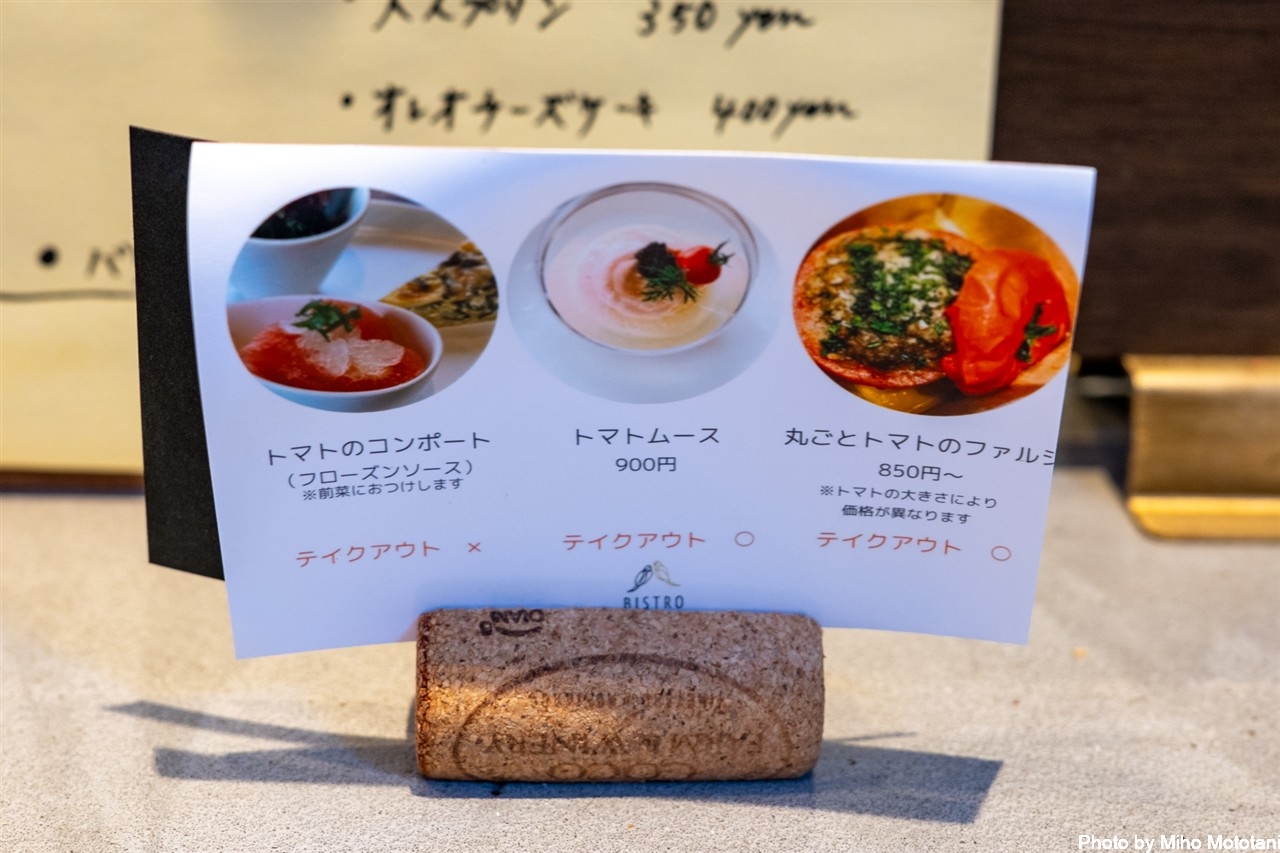 350 yen
・オレオチーズケーキ 400yen
トマトのコンポート
(フローズンソース)
※前菜におつけします
テイクアウト ×
トマトムース
900円
テイクアウト ○
丸ごとトマトのファルシ
850円～
※トマトの大きさにより
価格が異なります
テイクアウト ○
BISTRO
COCO
FARM & WINERY
Photo by Miho Mototani